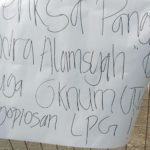 eriksa Pang
ura Alamsyah "
uga Oknum
oplosan LPG